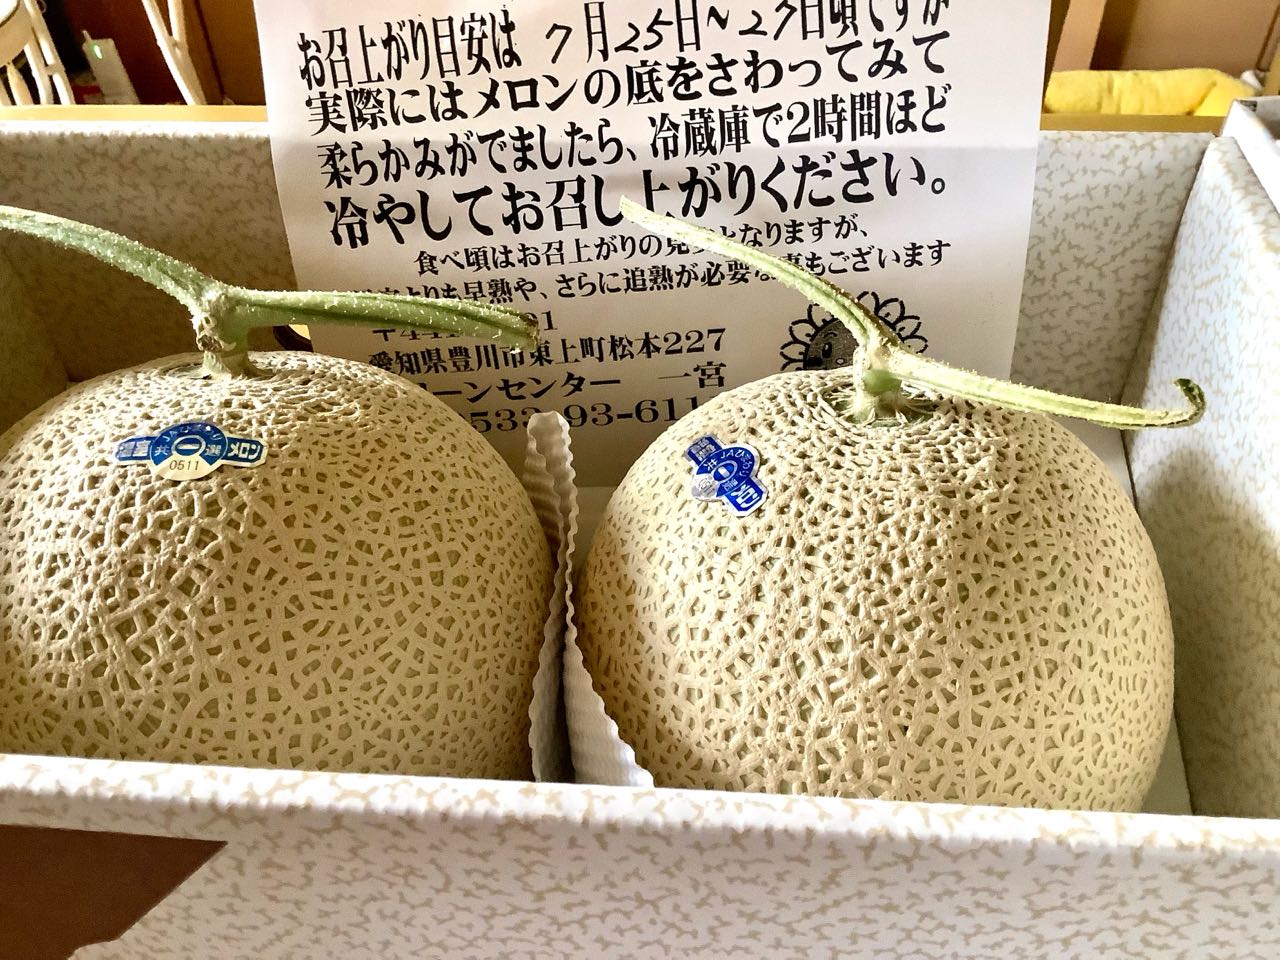 お召上がり目安は 7月25日~27日頃ですが
実際にはメロンの底をさわってみて
柔らかみがでましたら、冷蔵庫で2時間ほど
冷やしてお召し上がりください。
食べ頃はお召上がりの となりますが、
よりも早熟や、さらに追熟が必要な 事もございます
愛知県豊川市東上町松本227
ーンセンター 一宮
533-93-611
JAひまわり
共 選
メロン
0511
JAひまわり
共 選
メロン